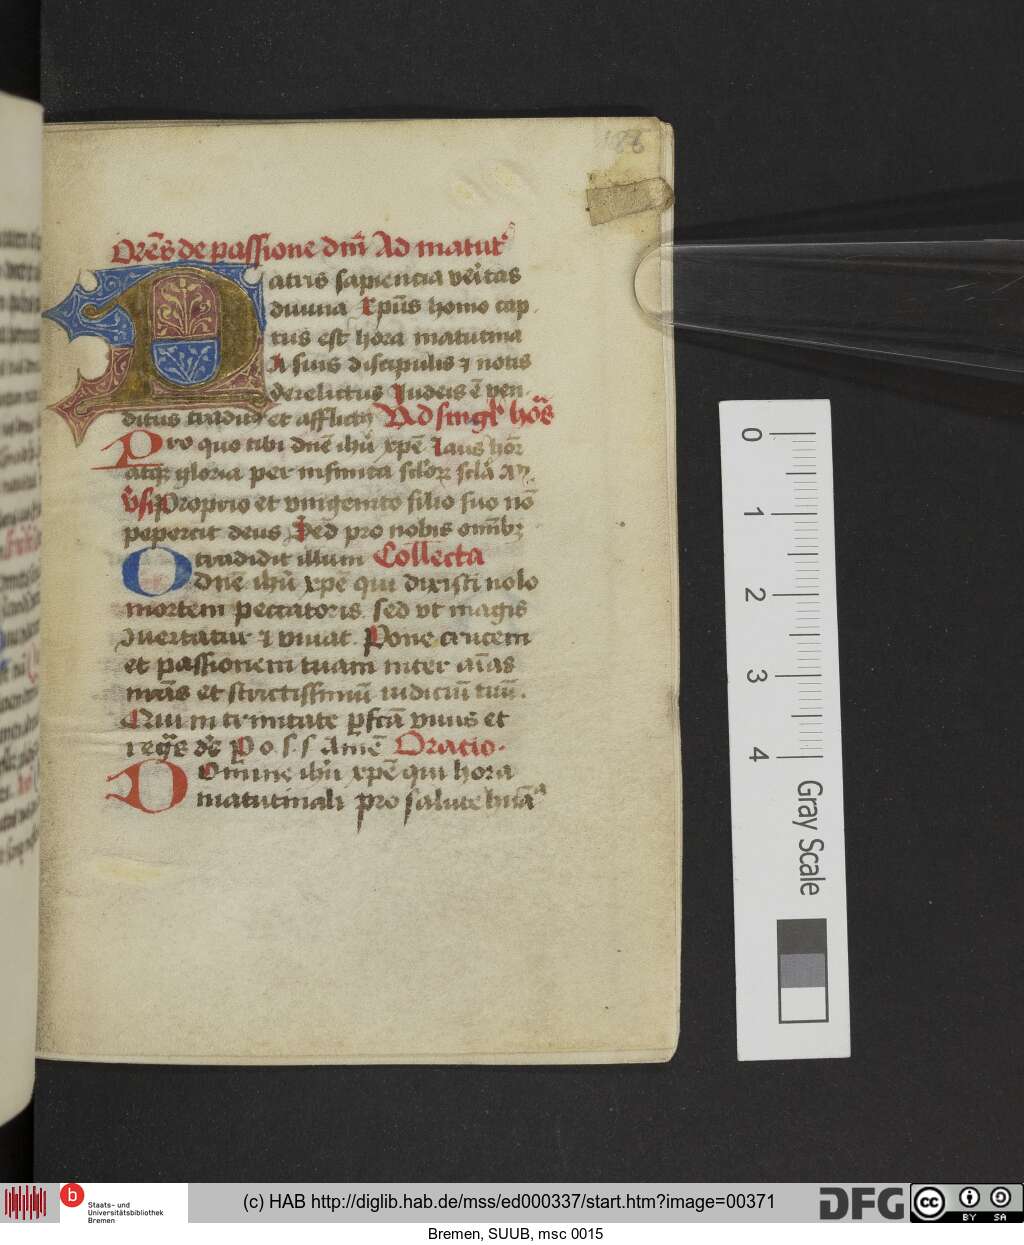 Orēs de passione dm̄ Ad matut
Patris sapiencia veritas
diuina xp̄us homo cap
tus est hora matutina
A suis discipulis ⁊ notis
derelictus Iudeis ē ven
ditus tradit9 et afflict9 Ad singl hōs
Pro quo tibi dn̄e ihū xp̄e laus hōr
atqꝫ gloria per infinita sclōꝝ sclā am
v̄s Proprio et vnigenito filio suo nō
pepercit deus Sed pro nobis om̄ibꝫ
tradidit illum Collecta
O dn̄e ihū xp̄e qui dixisti nolo
mortem peccatoris sed vt magis
ꝯuertatur ⁊ viuat Pone crucem
et passionem tuam inter aīas
nr̄as et strictissimū iudiciū tuū.
Qui in trinitate ꝑfcā viuis et
regs ds P o. s. s Amē Oratio.
Domine ihū xp̄e qui hora
matutinali pro salute hūa
0
1
2
3
4
Gray Scale
b
Staats- und
Universitätsbibliothek
Bremen
(c) HAB http://diglib.hab.de/mss/ed000337/start.htm?image=00371
DFG
cc
BY SA
Bremen, SUUB, msc 0015